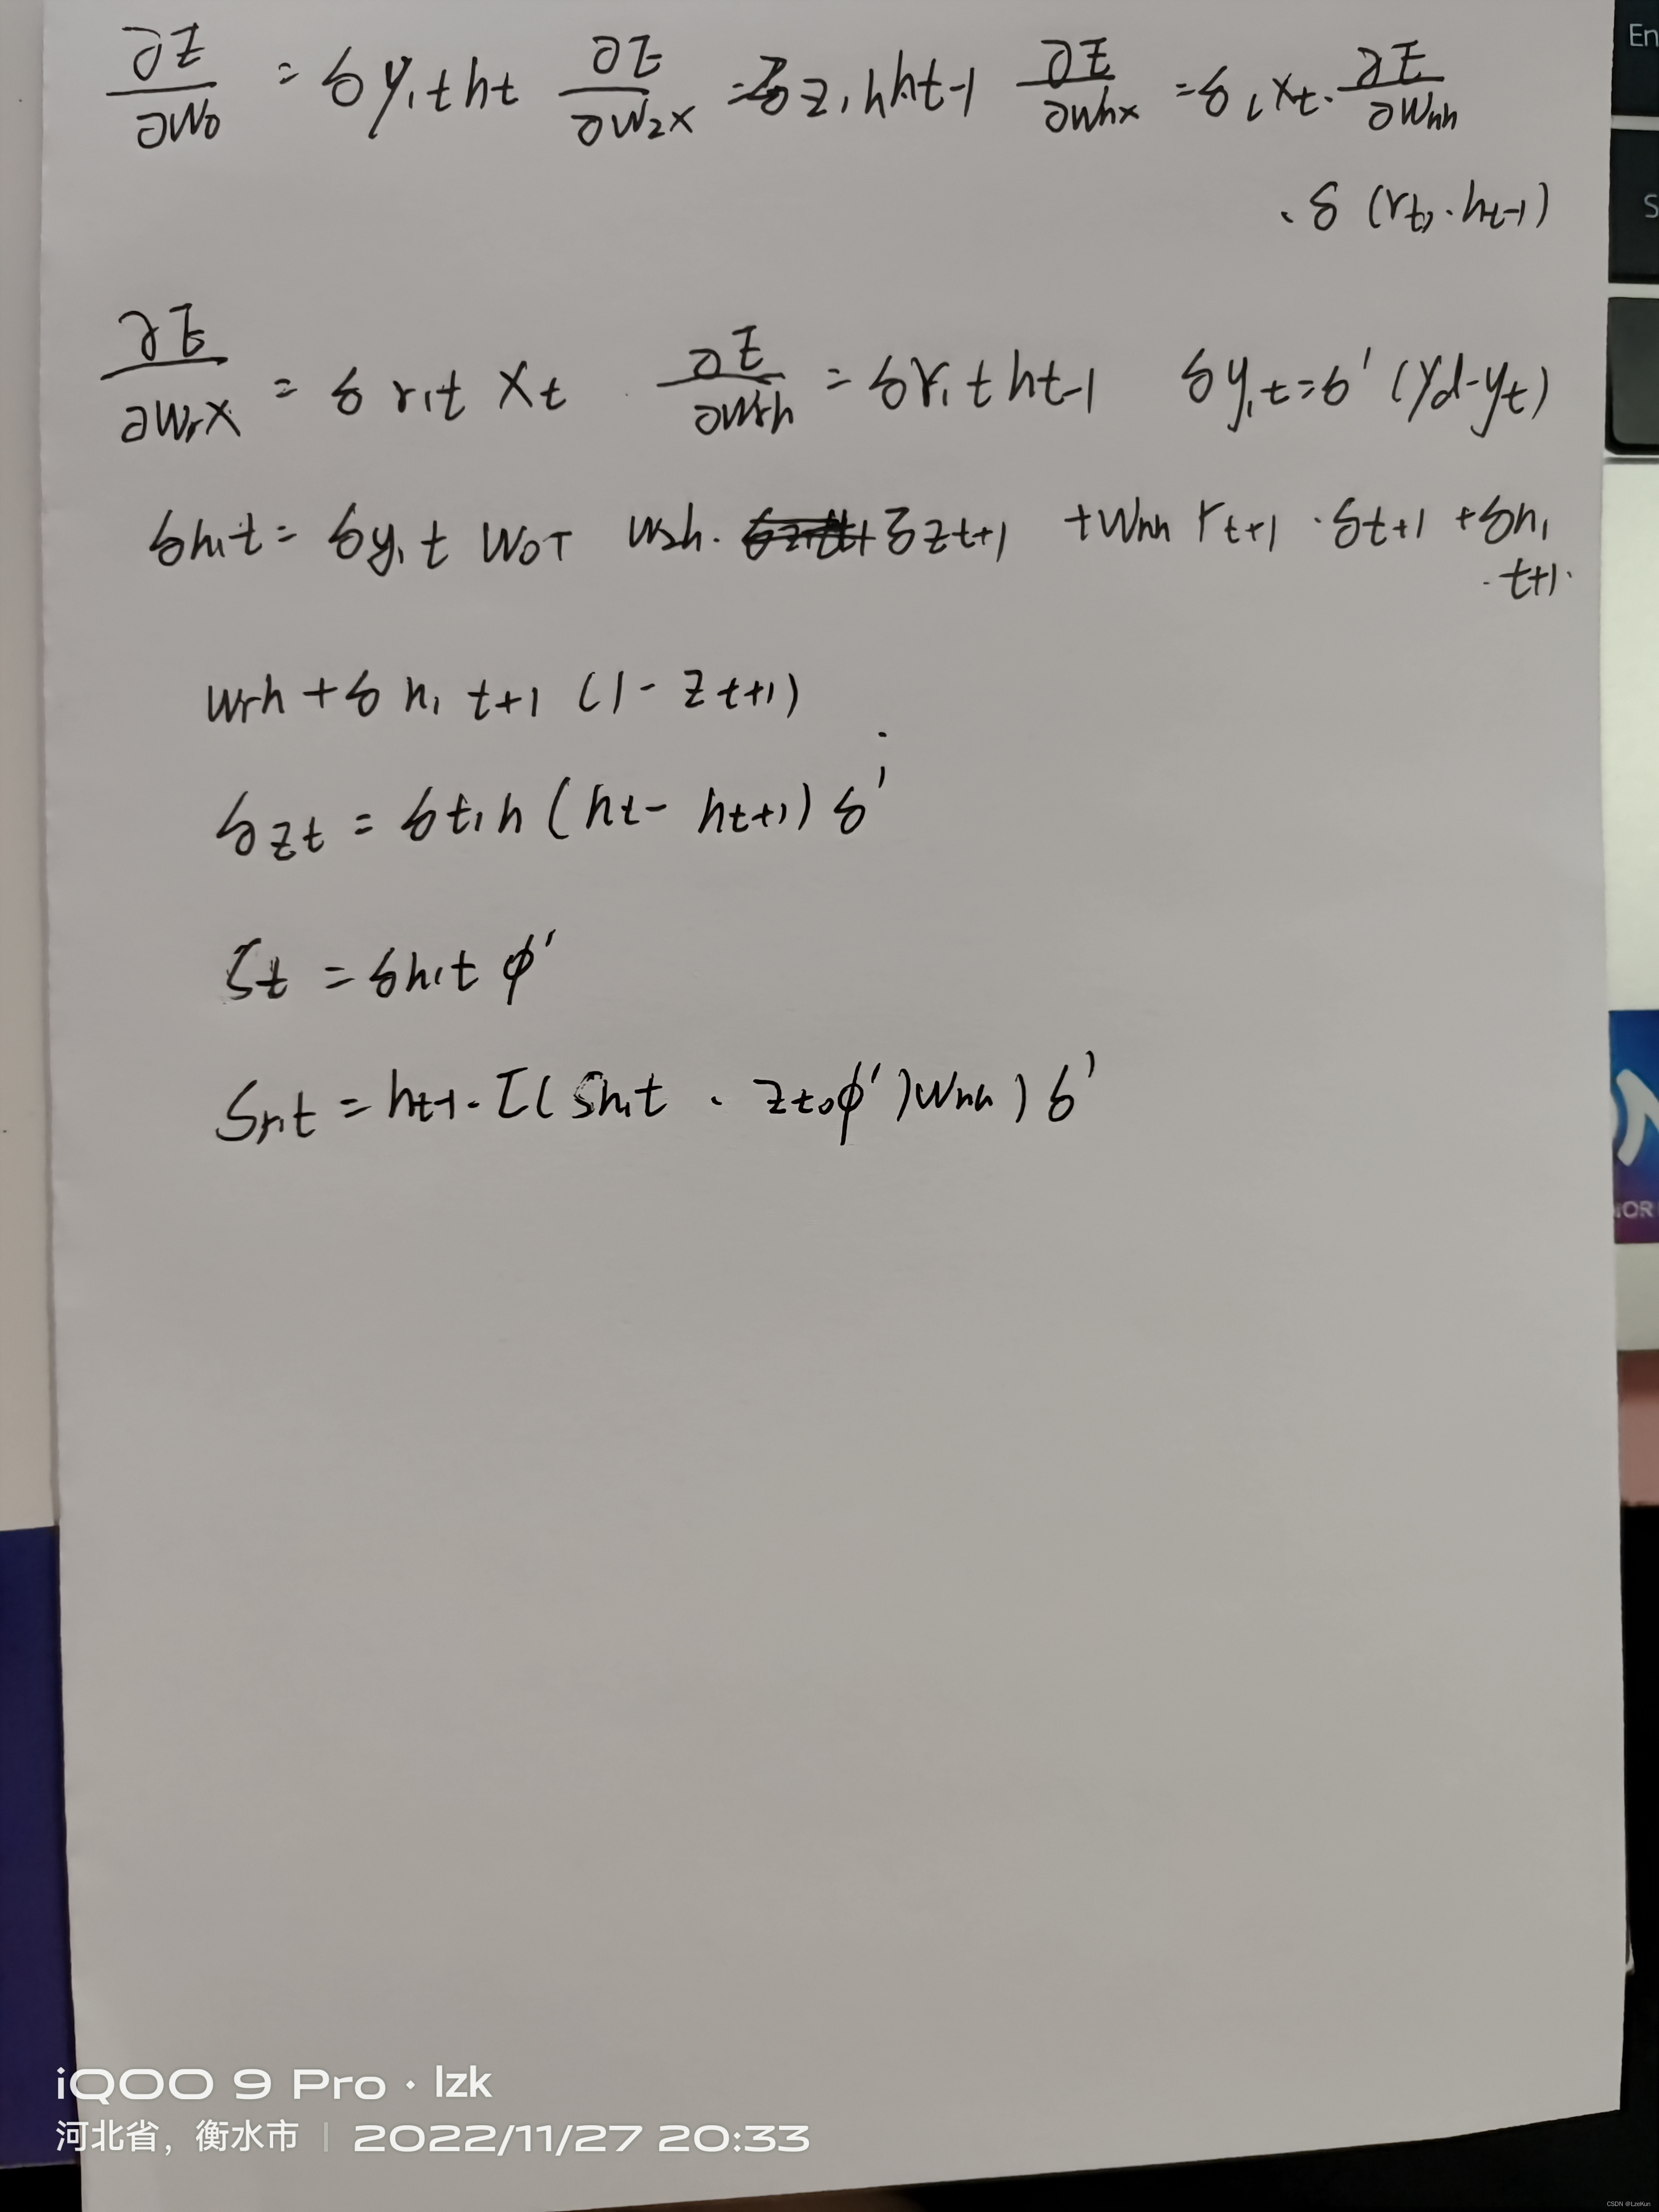 ∂E/∂W₀ = δy,t ht ∂E/∂W₂x = δz,h ht-1 ∂E/∂Whx = δ, xt · ∂E/∂Whh
· δ (rt, · ht-1)
∂E/∂Wrx = δ r,t Xt ∂E/∂Wrh = δr,t ht-1 δy,t = δ' (yd-yt)
δh,t = δy,t WoT Wzh · δzt+1 + Whh rt+1 · δt+1 + δh,
· t+1 ·
Wrh + δ h, t+1 (1 - zt+1)
δzt = δt,h (ht - ht+1) δ'
δt = δh,t φ'
Sr,t = ht-1 · [(Sh,t · zt∘φ')Whh) δ'
En
S
iQOO 9 Pro · lzk
河北省，衡水市 | 2022/11/27 20:33
CSDN @LzeKun